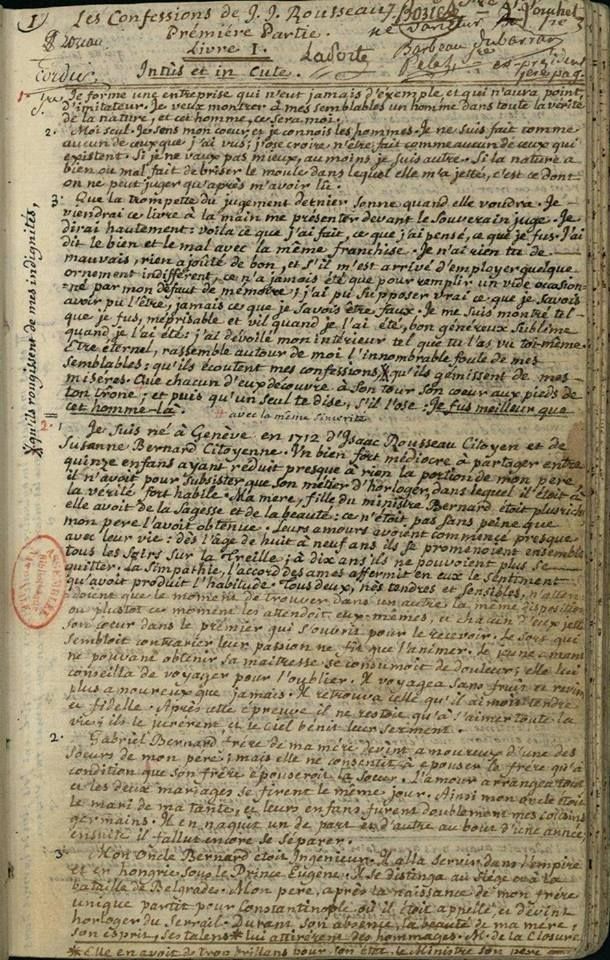 1) Les Confessions de J. J. Rousseau
Première Partie.
Livre I.
Intùs et in Cute.
1. Je forme une entreprise qui n'eut jamais d'exemple, et qui n'aura point
d'imitateur. Je veux montrer à mes semblables un homme dans toute la vérité
de la nature, et cet homme, ce sera moi.
2. Moi seul. Je sens mon coeur, et je connois les hommes. Je ne suis fait comme
aucun de ceux que j'ai vus; j'ose croire n'être fait comme aucun de ceux qui
existent. Si je ne vaux pas mieux, au moins je suis autre. Si la nature a
bien ou mal fait de briser le moule dans lequel elle m'a jetté, c'est ce dont
on ne peut juger qu'après m'avoir lû.
3. Que la trompette du jugement dernier sonne quand elle voudra. Je
viendrai ce livre à la main me présenter devant le Souverain juge. Je
dirai hautement: voila ce que j'ai fait, ce que j'ai pensé, ce que je fus. J'ai
dit le bien et le mal avec la même franchise. Je n'ai rien tu de
mauvais, rien ajoûté de bon, et s'il m'est arrivé d'employer quelque
ornement indifférent, ce n'a jamais été que pour remplir un vide occasion=
=né par mon défaut de mémoire; j'ai pu supposer vrai ce que je savois
avoir pu l'être, jamais ce que je savois être faux. Je me suis montré tel
que je fus, méprisable et vil quand je l'ai été, bon généreux sublime
quand je l'ai été: j'ai dévoilé mon intérieur tel que tu l'as vu toi-même.
Etre éternel, rassemble autour de moi l'innombrable foule de mes
semblables: qu'ils écoutent mes confessions, qu'ils gémissent de mes
misères. Que chacun d'eux découvre à son tour son coeur aux pieds de
ton trône; et puis qu'un seul te dise, s'il l'ose: Je fus meilleur que
cet homme-là. # avec la même sincérité
qu'ils rougissent de mes indignités,
2. 1 Je suis né à Genève en 1712 d'Isaac Rousseau Citoyen et de
Susanne Bernard Citoyenne. Un bien fort médiocre à partager entre
quinze enfans ayant réduit presque à rien la portion de mon pere,
il n'avoit pour subsister que son métier d'horloger, dans lequel il étoit à
la vérité fort habile. Ma mere, fille du ministre Bernard étoit plus riche
elle avoit de la sagesse et de la beauté: ce n'étoit pas sans peine que
mon pere l'avoit obtenue. Leurs amours avoient commencé presque
avec leur vie: dès l'âge de huit à neuf ans ils se promenoient ensemble
tous les soirs sur la Treille; à dix ans ils ne pouvoient plus se
quitter. La simpathie, l'accord des ames affermit en eux le sentiment
qu'avoit produit l'habitude. Tous deux, nés tendres et sensibles, n'atten
doient que le moment de trouver dans un autre la même disposition
ou plustot ce moment les attendoit eux-mêmes, et chacun d'eux jetta
son coeur dans le premier qui s'ouvrit pour le recevoir. Le sort qui
sembloit contrarier leur passion ne fit que l'animer. Le jeune amant
ne pouvant obtenir sa maitresse se consumoit de douleur; elle lui
conseilla de voyager pour l'oublier. Il voyagea sans fruit et revint
plus amoureux que jamais. Il retrouva celle qu'il aimoit tendre
et fidelle. Après cette épreuve il ne restoit qu'à s'aimer toute la
vie; ils le jurèrent, et le ciel bénit leur serment.
2. Gabriel Bernard frére de ma mére devint amoureux d'une des
soeurs de mon pere; mais elle ne consentit à épouser le frére qu'à
condition que son frére épouseroit la soeur. L'amour arrangea tout
et les deux mariages se firent le même jour. Ainsi mon oncle étoit
le mari de ma tante, et leurs enfans furent doublement mes cousins
germains. Il en naquit un de part et d'autre au bout d'une année;
ensuite il fallut encore se séparer.
3. Mon Oncle Bernard étoit Ingenieur: il alla servir dans l'empire
et en hongrie sous le Prince Eugène. Il se distingua au siége et à la
bataille de Belgrade. Mon pere, après la naissance de mon frére
unique partit pour Constantinople où il étoit appellé et devint
horloger du Serrail. Durant son absence, la beauté de ma mere,
son esprit, ses talens * lui attirèrent des hommages. M. de la Closure
* Elle en avoit de trop brillans pour son état, le Ministre son pere